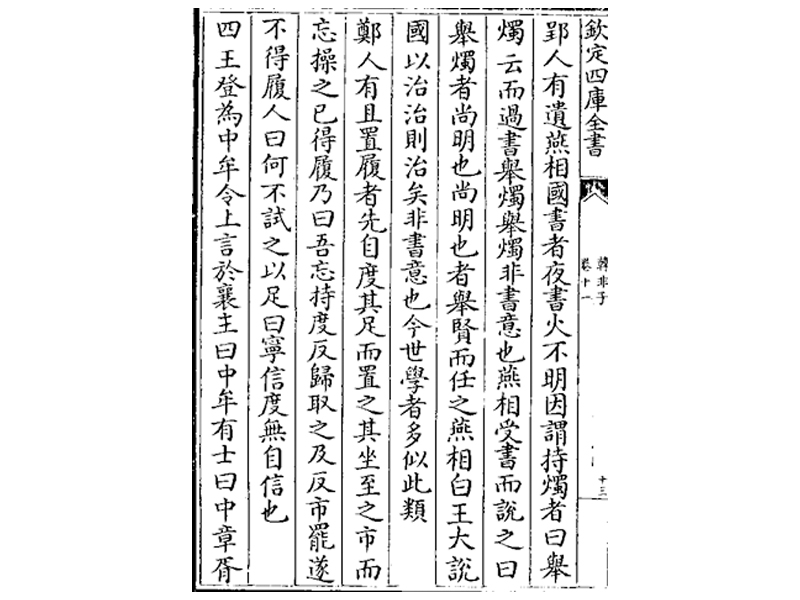 欽定四庫全書
韓非子
卷十一
十三
郢人有遺燕相國書者夜書火不明因謂持燭者曰舉
燭云而過書舉燭舉燭非書意也燕相受書而說之曰
舉燭者尚明也尚明也者舉賢而任之燕相白王大說
國以治治則治矣非書意也今世學者多似此類
鄭人有且置履者先自度其足而置之其坐至之市而
忘操之已得履乃曰吾忘持度反歸取之及反市罷遂
不得履人曰何不試之以足曰寧信度無自信也
四王登為中牟令上言於襄主曰中牟有士曰中章胥